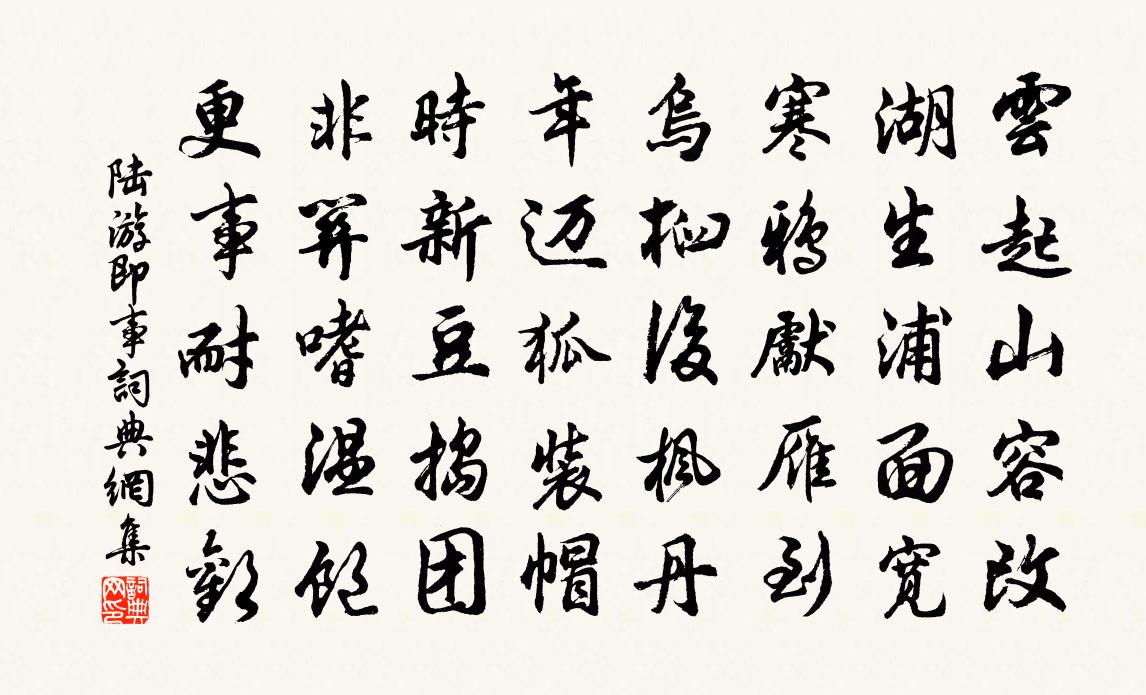 雲起山容改
湖生浦面寬
寒鴉獻雁到
烏桕後楓丹
年迈狐裝帽
時新豆搗团
非關嗜温飽
更事耐悲歡
陆游即事詞典網集
詞典网印